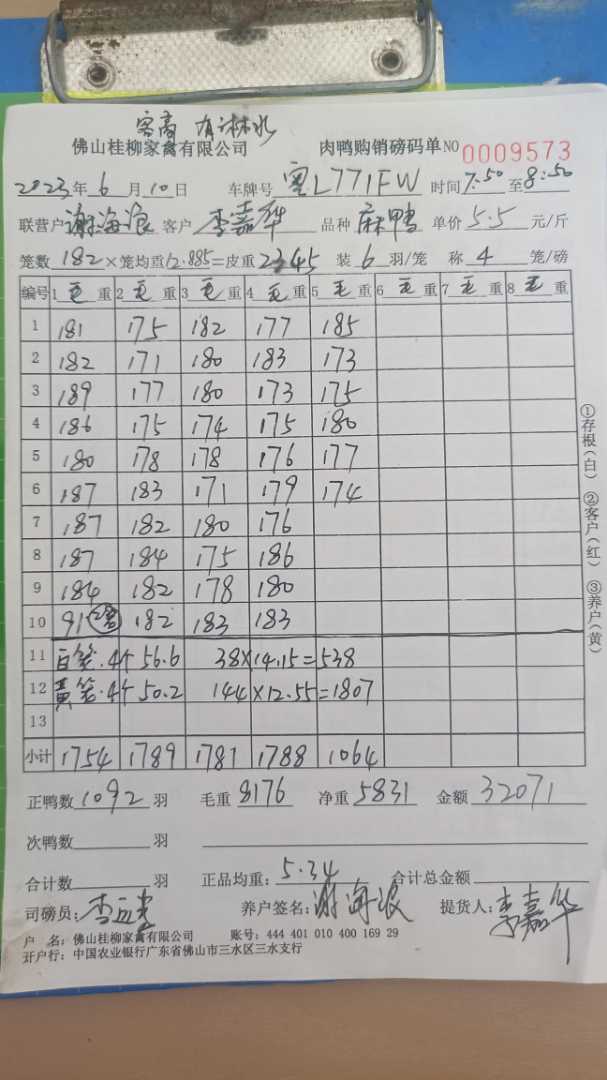 客高 有淋水
佛山桂柳家禽有限公司 肉鸭购销磅码单 NO 0009573
2023年 6 月 10 日 车牌号 粤L771FW 时间 7:50 至 8:50
联营户 谢海浪 客户 李嘉华 品种 麻鸭 单价 5.5 元/斤
笼数 182 ×笼均重 12.885 =皮重 2345 装 6 羽/笼 称 4 笼/磅
编号 1 毛 重 2 毛 重 3 毛 重 4 毛 重 5 毛 重 6 毛 重 7 毛 重 8 毛 重
1 181 175 182 177 185
2 182 171 180 183 173
3 189 177 180 173 175
4 186 175 174 175 180
5 180 178 178 176 177
6 187 183 171 179 174
7 187 182 180 176
8 187 184 175 186
9 184 182 178 180
10 91 182 183 183
11 白笼.4个 56.6 38×14.15=538
12 黄笼.4个 50.2 144×12.55=1807
13
小计 1754 1789 1781 1788 1064
正鸭数 1092 羽 毛重 8176 净重 5831 金额 32071
次鸭数 羽
合计数 羽 正品均重: 5.34 合计总金额
司磅员: 养户签名: 谢海浪 提货人: 李嘉华
户 名: 佛山桂柳家禽有限公司 账号: 444 401 010 400 169 29
开户行: 中国农业银行广东省佛山市三水区三水支行
①存根(白) ②客户(红) ③养户(黄)